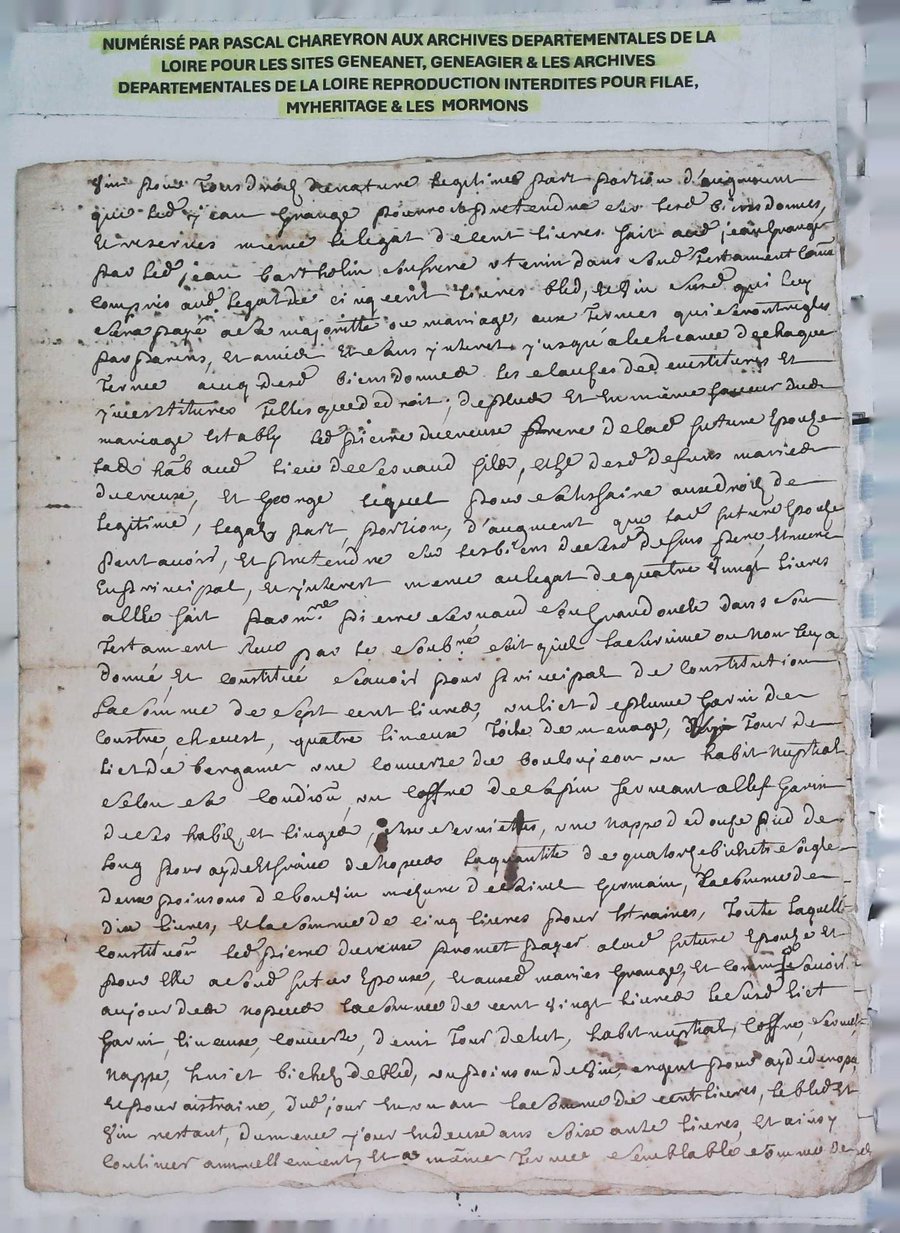 NUMÉRISÉ PAR PASCAL CHAREYRON AUX ARCHIVES DEPARTEMENTALES DE LA
LOIRE POUR LES SITES GENEANET, GENEAGIER & LES ARCHIVES
DEPARTEMENTALES DE LA LOIRE REPRODUCTION INTERDITES POUR FILAE,
MYHERITAGE & LES MORMONS
vin pour tous droits de nature legitime part portion d'augment
que led jean Grange pourroit pretendre sur lesd biens donnes,
et reserves meme le legat de cent livres fait aud jean Grange
par led jean barthelin dans sond testament
compris aud legat de cinq cent livres bled, et vin susd qui luy
sera payé a sa majoritte ou mariage, aux termes qui seront regles
par parens, et amis et sans jnteret jusqu'a lecheance de chaque
terme desd biens donnes les clauses de devestitures et
jnvestitures telles que de droit, de plus et en même faveur dud
mariage estably led pierre frere de lad future Epouze
hab aud lieu de filz, desd defuns maries
et George lequel pour satisfaire aux droits de
legitime, legat, part, portion, d'augment que lad future Epouze
peut avoir, et pretendre sur les biens desd defuns pere, et mere
en principal, et jnterest meme au legat de quatre vingt livres
a elle fait par me pierre son Grand oncle dans son
testament receu par le soubne soit quil lacertaine ou non luy a
donné, et constitué scavoir pour principal de constitution
la somme de sept cent livres, un lict de plume Garni de
coustre, chevest, quatre linceux toile de menage, tour de
lict de bergame une couverte de un habit nuptial
selon sa condion, un coffre de sapin fermant a clef Garni
de ses habits, et linges, six serviettes, une nappe de douse pied de
long pour ayde et frais de nopces la quantité de quatorze bichets seigle
deux poinsons de bon vin mesure de Saint Germain, la somme de
dix livres, et la somme de cinq livres pour Estraines, toute laquelle
constituon led pierre promet payer a lad future Epouze et
pour elle a sond futur Epoux, et ausd maries Grange, et comme scavoir
au jour des nopces la somme de cent vingt livres le susd lict
Garni, linceux, couverte, demi tour de lict, habit nuptial, coffre,
Nappe, huict bichets de bled, un poinson de vin, argent pour ayde
et pour aistraine, dud jour en un an la somme de cent livres, le bled et
vin restant, du meme jour en deux ans soixante livres, et ainsy
continuer annuellement, et a même terme semblable somme de